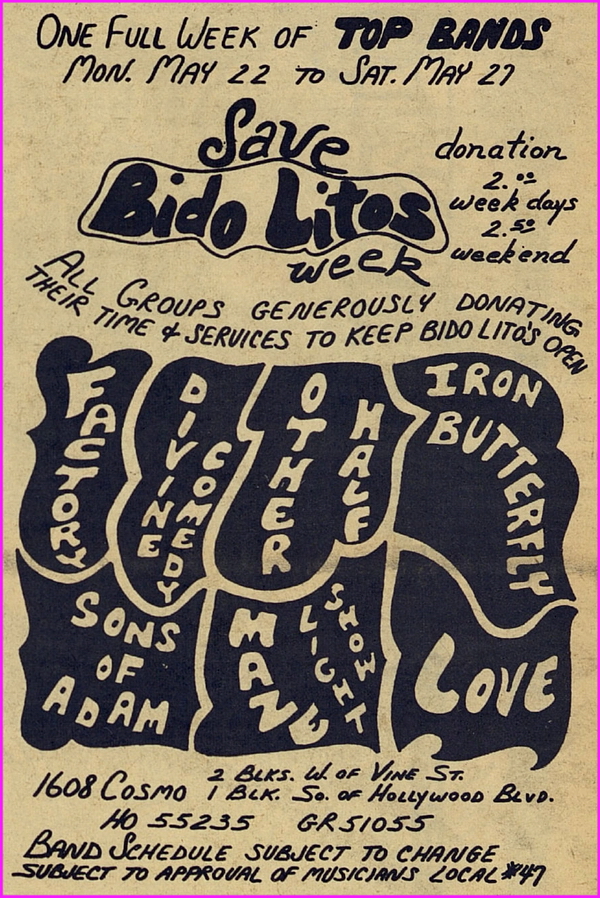 ONE FULL WEEK OF TOP BANDS
MON. MAY 22 TO SAT. MAY 27
Save
Bido Litos
week
donation
2.00
week days
2.50
weekend
ALL GROUPS GENEROUSLY DONATING
THEIR TIME & SERVICES TO KEEP BIDO LITO'S OPEN
FACTORY
DIVINE
COMEDY
OTHER
HALF
IRON
BUTTERFLY
SONS
OF
ADAM
MAZE
LIGHT
SHOW
LOVE
1608 COSMO
2 BLKS. W. OF VINE ST.
1 BLK. SO. OF HOLLYWOOD BLVD.
HO 55235 GR 51055
BAND SCHEDULE SUBJECT TO CHANGE
SUBJECT TO APPROVAL OF MUSICIANS LOCAL #47